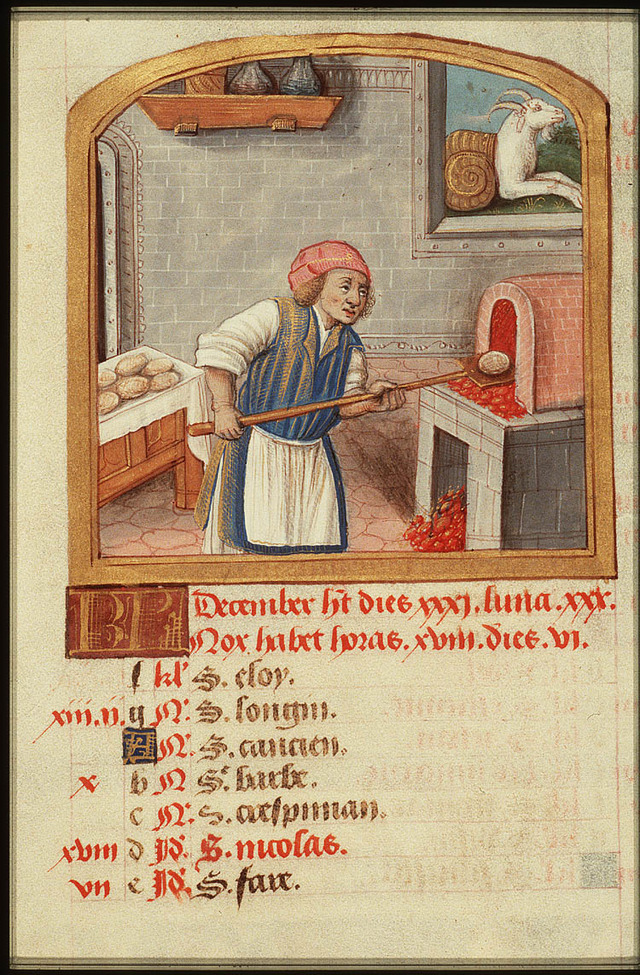 KL December ht dies xxxi. luna. xxx.
Nox habet horas. xviii. dies. vi.
f kl' S. eloy.
xiii. ii. g N. S. longin.
A N. S. cancien.
x b N Se barbe.
c N. S. crespinian.
xviii d Id. S. nicolas.
vii e Id. S. fare.